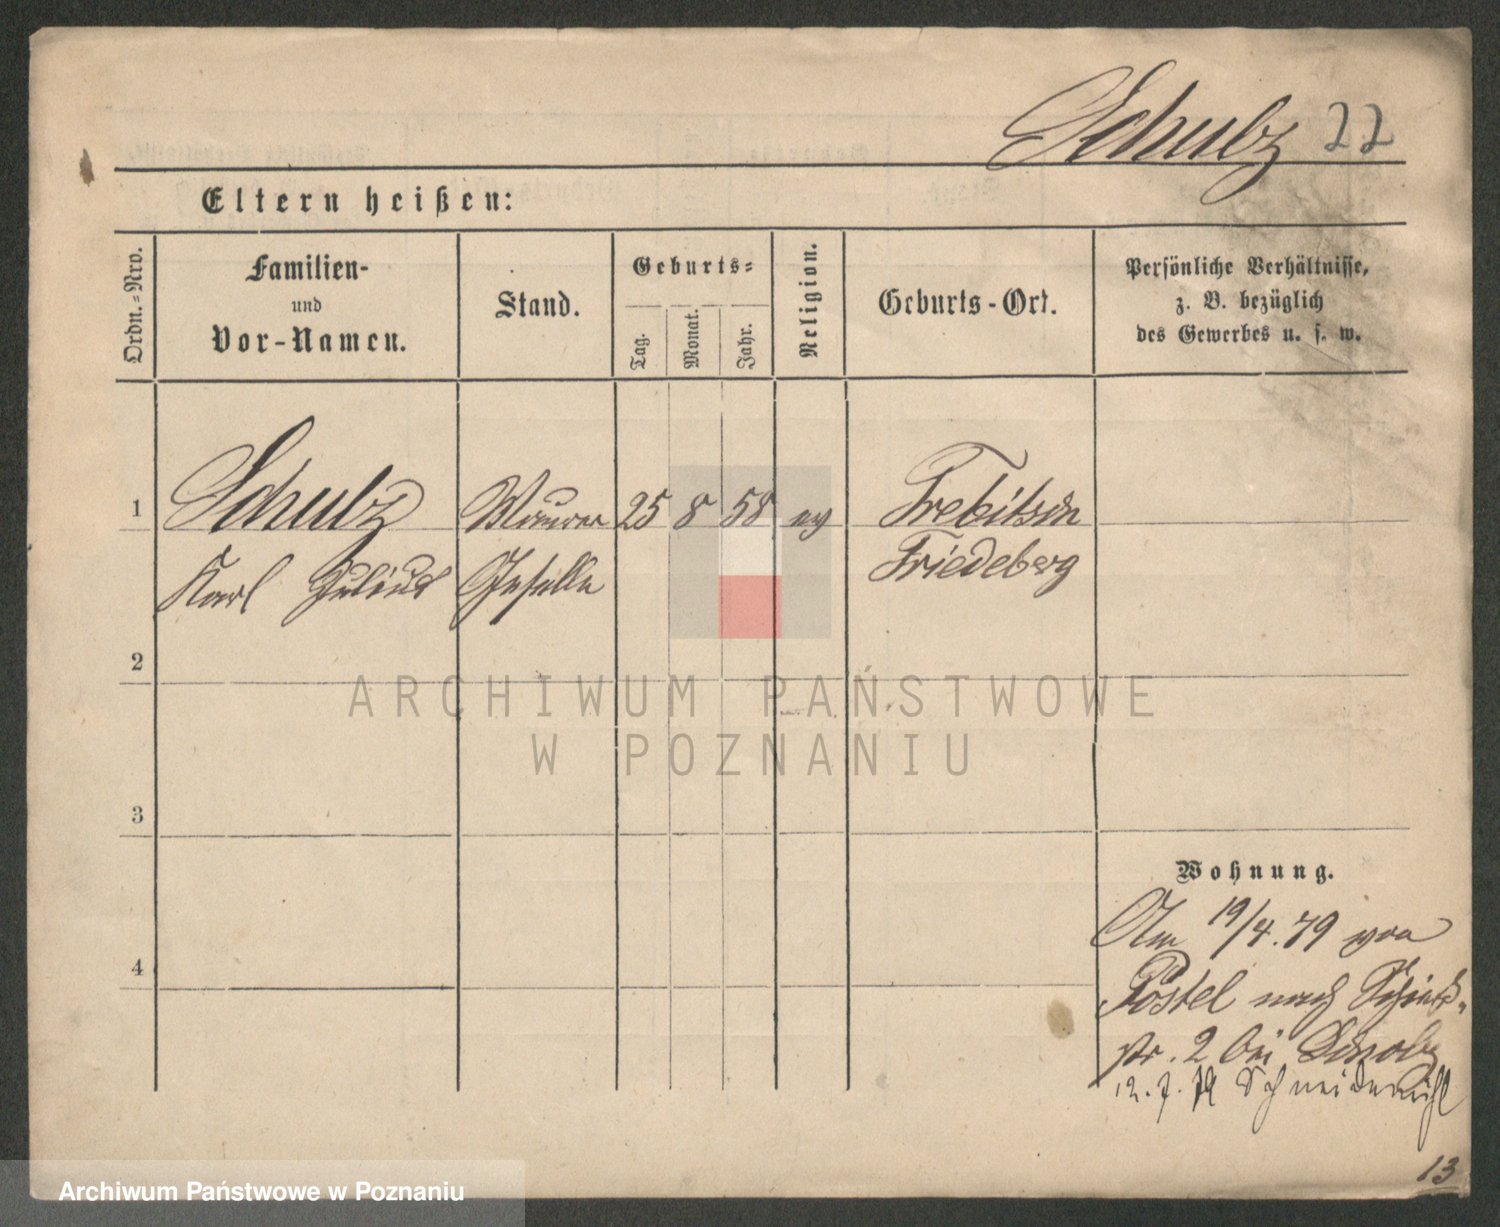 Schulz 22
Eltern heißen:
Ordn.-Nro.
Familien-
und
Vor-Namen.
Stand.
Geburts-
Tag.
Monat.
Jahr.
Religion.
Geburts-Ort.
Persönliche Verhältnisse,
z. B. bezüglich
des Gewerbes u. s. w.
1 Schulz Maurer 25 8 58 ev Trebitsch
Karl Julius Geselle Friedeberg
2
3
4
ARCHIWUM PAŃSTWOWE
W POZNANIU
Wohnung.
Am 19/4. 79 von
Postel nach
str. 2 bei
12. 7. 79 Schneidemühl
13
Archiwum Państwowe w Poznaniu